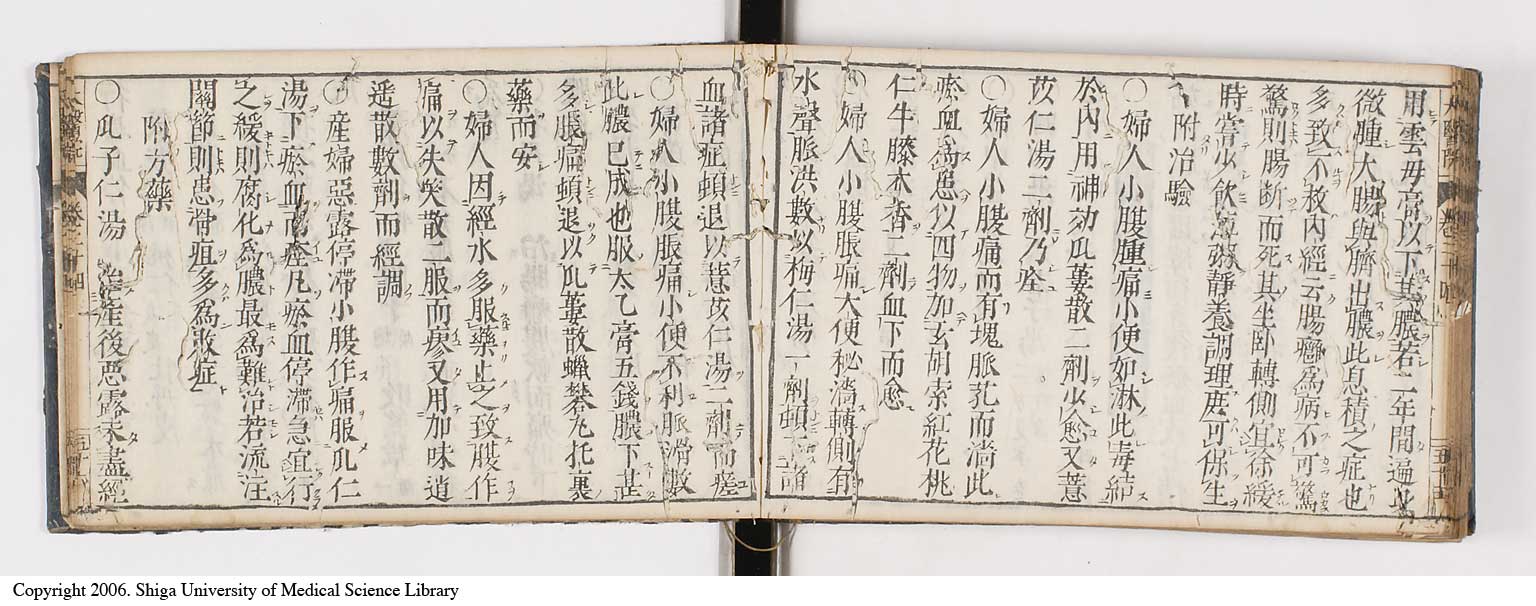 用雲母膏以下其膿若二年間遍身
微腫大腸與臍出膿此息積之症也
多致不救內經云腸癰爲病不可驚
驚則腸斷而死其坐臥轉側宜徐緩
時當少飲薄粥靜養調理庶可保生
附治驗
○婦人小腹腫痛小便如淋此毒結
於內用神効瓜蔞散二劑少愈又薏
苡仁湯二劑乃痊
○婦人小腹痛而有塊脈芤而濇此
瘀血爲患以四物加玄胡索紅花桃
仁牛膝木香二劑血下而愈
○婦人小腹脹痛大便秘濇轉側有
水聲脈洪數以梅仁湯一劑頓諸
血諸症頓退以薏苡仁湯二劑而瘥
○婦人小腹脹痛小便不利脈滑數
此膿已成也服太乙膏五錢膿下甚
多脹痛頓退以瓜蔞散蠟礬丸托裏
藥而安
○婦人因經水多服藥止之致腹作
痛以失笑散二服而瘳又用加味逍
遥散數劑而經調
○產婦惡露停滯小腹作痛服瓜仁
湯下瘀血而痊凡瘀血停滯急宜行
之緩則腐化爲膿最爲難治若流注
關節則患骨疽多爲敗症
附方藥
○瓜子仁湯 治產後惡露未盡經
Copyright 2006. Shiga University of Medical Science Library